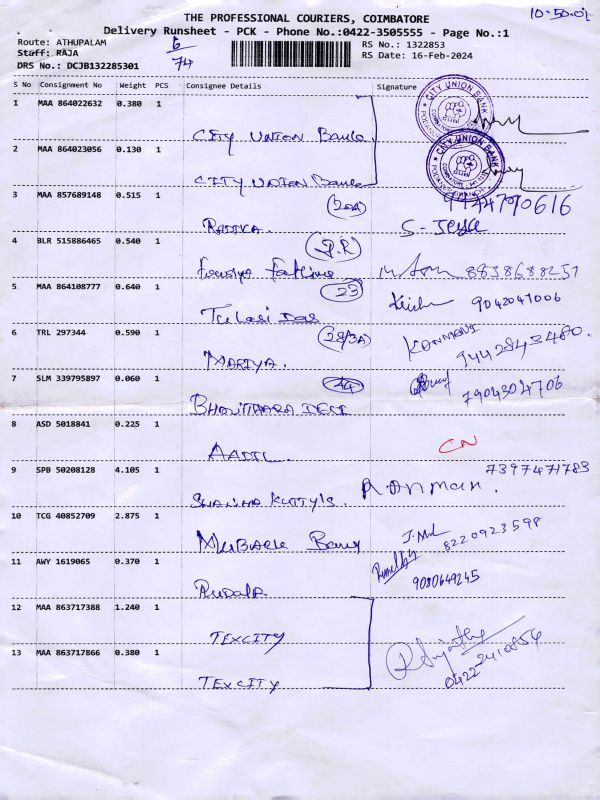 THE PROFESSIONAL COURIERS, COIMBATORE
10-50
Delivery Runsheet - PCK - Phone No.:0422-3505555 - Page No.:1
Route: ATHUPALAM
RS No.: 1322853
Staff: RAJA
6
RS Date: 16-Feb-2024
DRS No.: DCJB132285301
74
S No Consignment No Weight PCS Consignee Details Signature
1 MAA 864022632 0.380 1 CITY UNION Bank
CITY UNION BANK
2 MAA 864023056 0.130 1 CITY UNION Bank
CITY UNION BANK
3 MAA 857689148 0.515 1 RADIKA. S- Jeya
4 BLR 515886465 0.540 1 Fowziya Fathima 8838688257
5 MAA 864108777 0.640 1 Tulasi Das 23 9042041006
6 TRL 297344 0.590 1 MARIYA. 28/3A KANMANI 9442843480.
7 SLM 339795897 0.060 1 44 7904304706
8 ASD 5018841 0.225 1 AADIL. CN
9 SPB 50208128 4.105 1 SHALIMA KUTTY'S. 7397471783
10 TCG 40852709 2.875 1 MUBARAK 8220923598
11 AWY 1619065 0.370 1 9080649245
12 MAA 863717388 1.240 1 TEXCITY
13 MAA 863717866 0.380 1 TEXCITY 0422 2410854